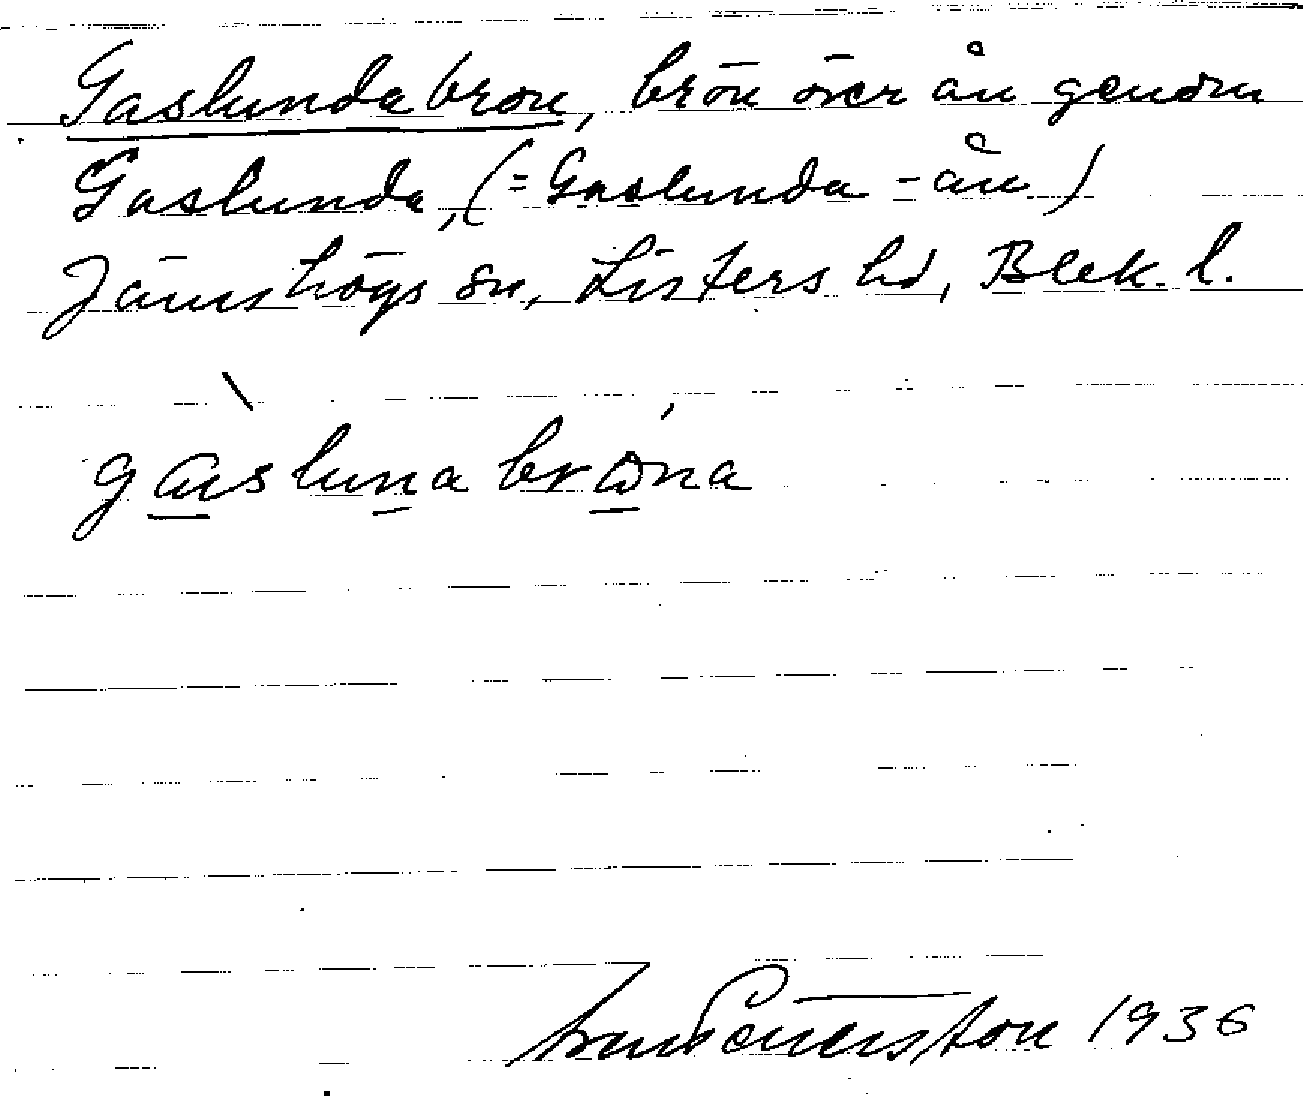 Gaslundabron, bron över ån genom
Gaslunda, (= Gaslunda-ån)
Jämshögs sn, Listers hd, Blek. l.
gaslunabrona
1936